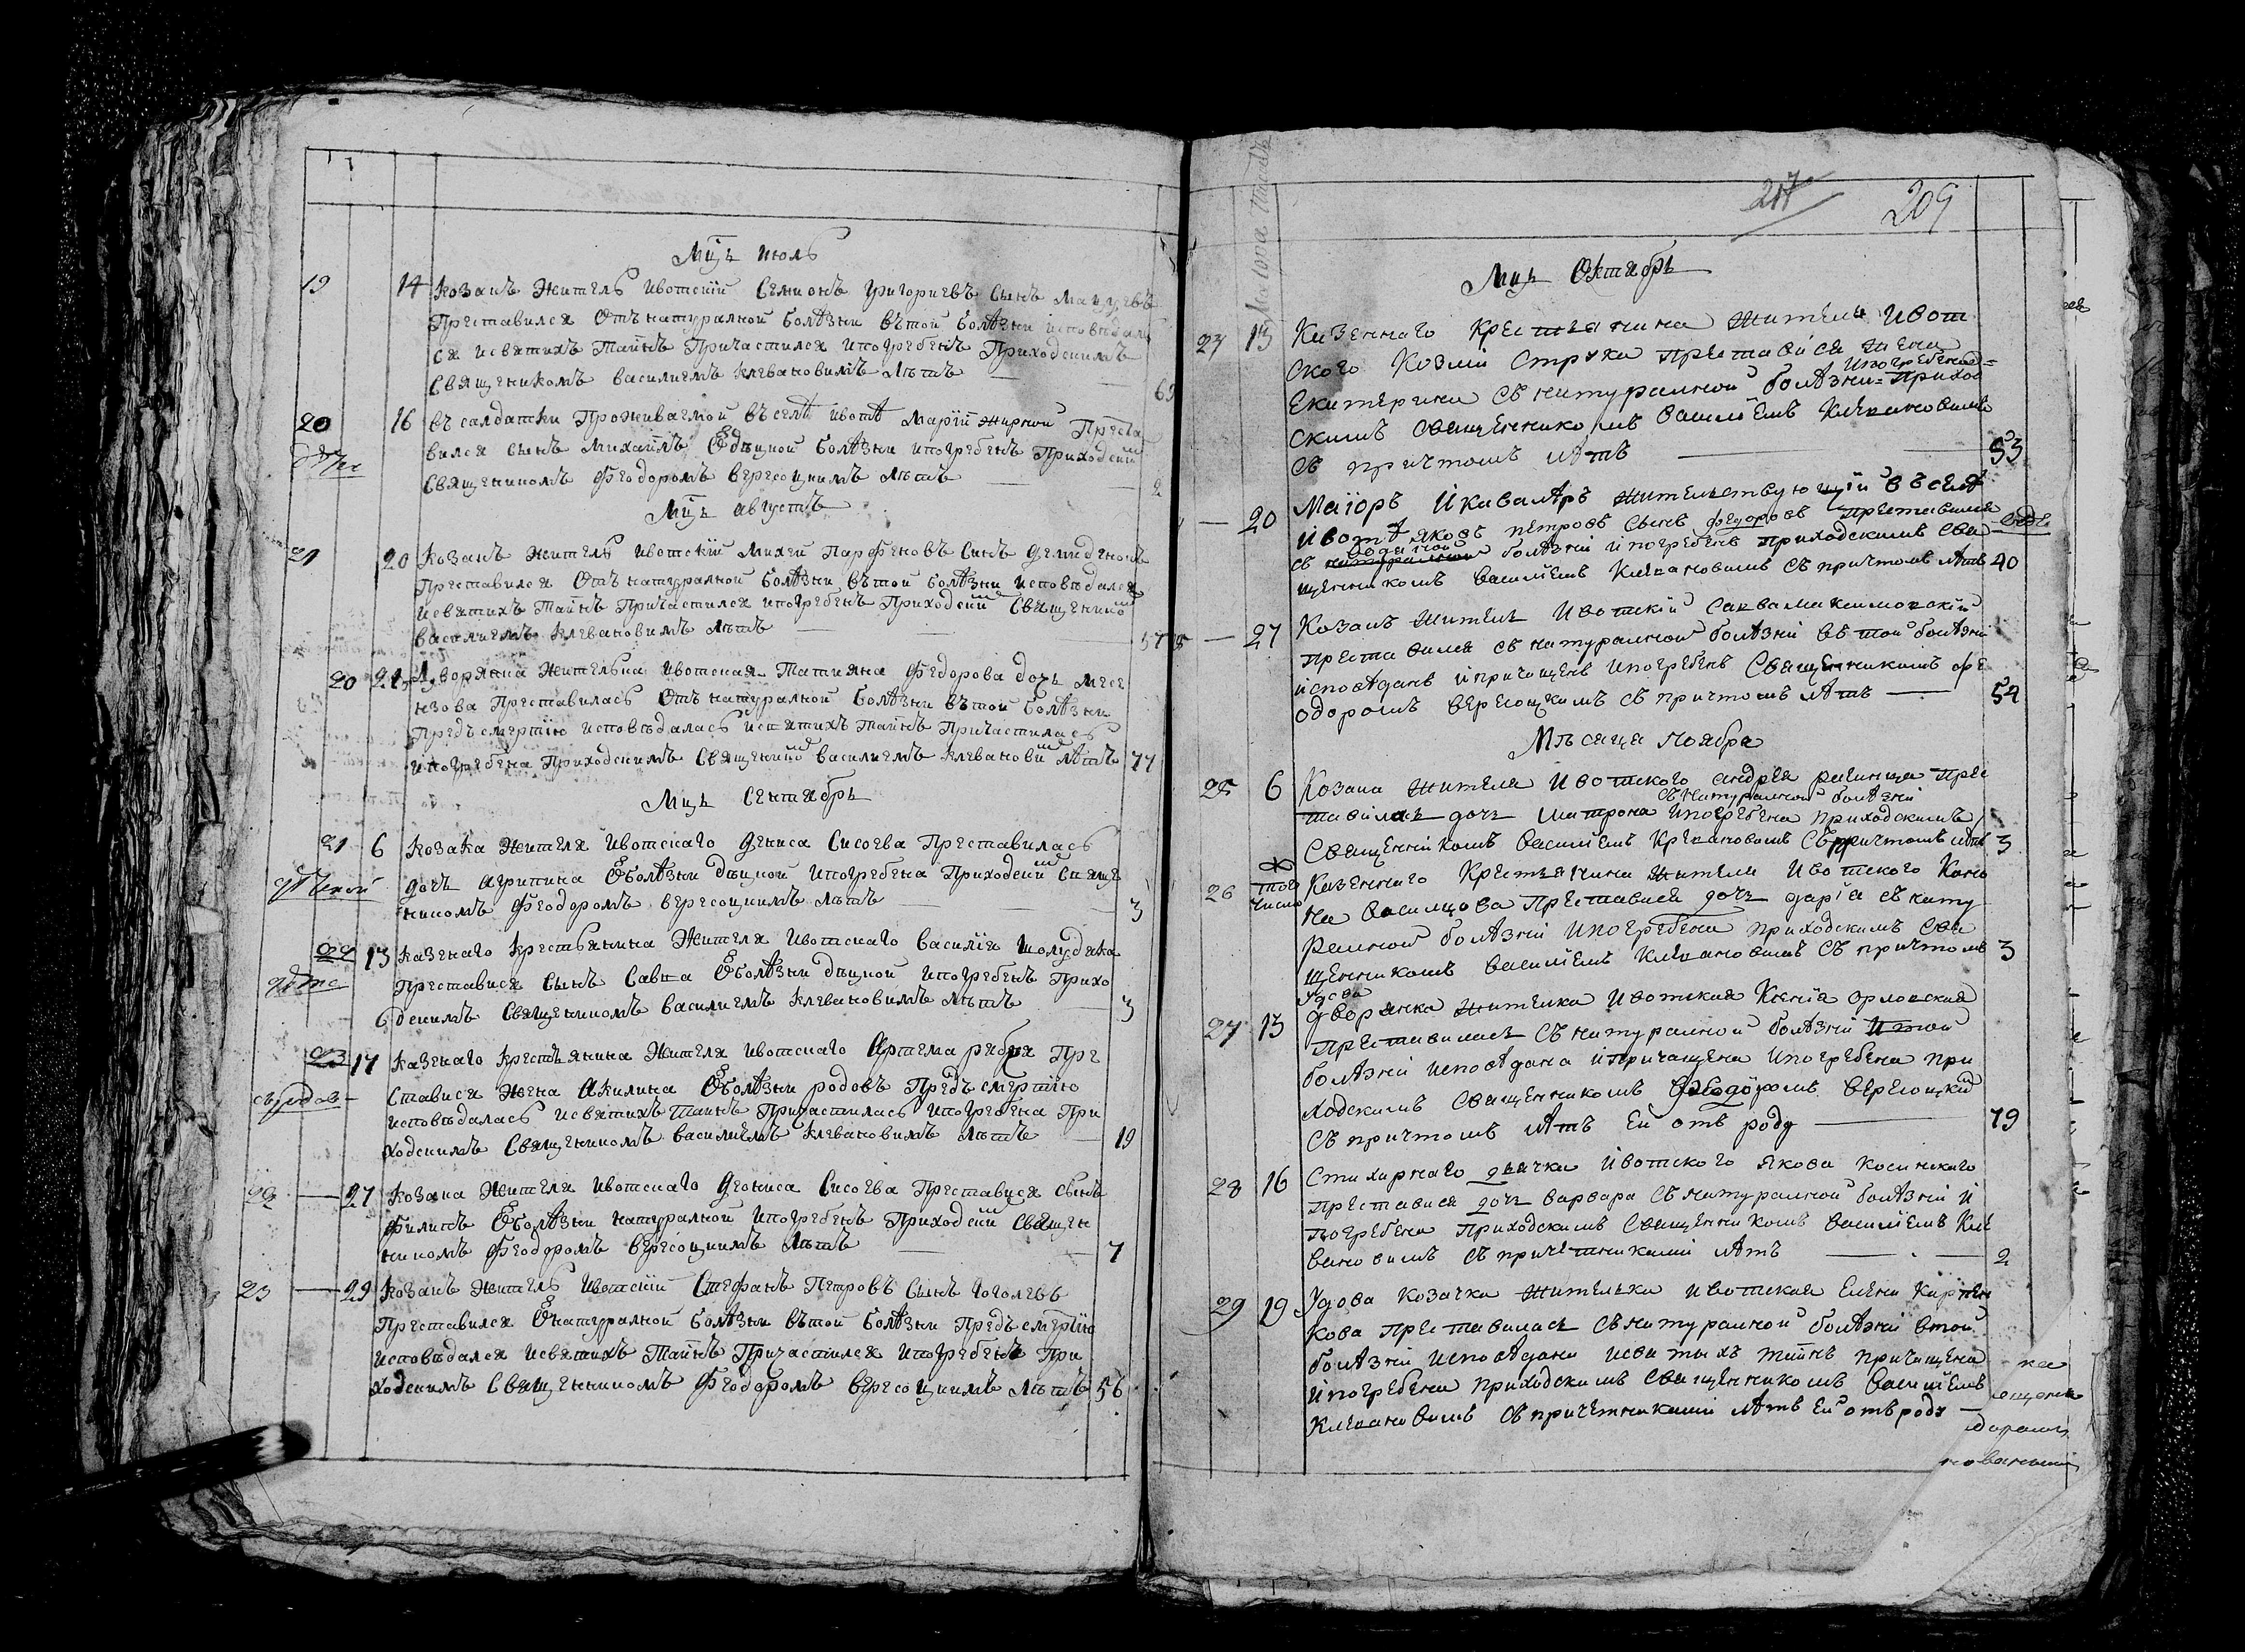 Мцъ июль
19 14 Козакъ житель Ивотскій Семионъ Григориевъ сынъ
Преставился отъ натуралной болѣзни въ той болѣзни исповѣдал
ся и святихъ Таинъ Причастился и погребенъ Приходскимъ
Священикомъ Василиемъ Клевановимъ лѣтъ —
20 16 въ салдатки Проживаемой въ селѣ Ивотѣ Маріи Жирной Преста
вился сынъ Михаилъ Ѿ дѣцкой болѣзни и погребенъ Приходским
Священикомъ Феодоромъ Вересоцкимъ лѣтъ — 2
Мцъ августъ
21 20 Козакъ житель Ивотскій Михей Парфеновъ Синъ Демиденовъ
Преставился Отъ натуралной болѣзни въ той болѣзни исповѣдался
и святихъ Таинъ Причастился и погребенъ Приходским Священиком
Василиемъ Клевановимъ лѣтъ — 57
20 Дворянка жителька Ивотская Татияна Федорова дочь
Преставилась Отъ натуралной болѣзни въ той болѣзни
Предъ смертію исповѣдалась и святихъ Таинъ Причастилась
и погребена Приходскимъ Священиком Василиемъ Клеванови лѣтъ 77
Мцъ Сентябрь
21 6 Козака жителя Ивотскаго Дениса Сисоева Преставилась
дочь Агрипина Ѿ болѣзни дѣцкой и погребена Приходским Свяще
никомъ Феодоромъ Вересоцкимъ лѣтъ — 3
22 13 Казенаго Крестьянина жителя Ивотскаго Василія Шолудяка
Преставися сынъ Савка Ѿ болѣзни дѣцкой и погребенъ Прихо
дскимъ Священикомъ Василиемъ Клевановимъ лѣтъ — 3
23 17 Казенаго Крестьянина жителя Ивотскаго Артема Рября Пре
ставися жена Акилина Ѿ болѣзни родовъ Предъ смертію
съ родов
исповѣдалась и святихъ Таинъ Причастилась и погребена При
ходскимъ Священикомъ Василиемъ Клевановимъ лѣтъ — 19
22 — 27 Козака жителя Ивотскаго Деониса Сисоева Преставися сынъ
Филипъ Ѿ болѣзни натуралной и погребенъ Приходским Священ
никомъ Феодоромъ Вересоцкимъ лѣтъ — 7
23 — 29 Козакъ житель Ивотскій Стефанъ Петровъ Сынъ Гоголевъ
Преставился Ѿ натуралной болѣзни въ той болѣзни Предъ смертію
исповѣдался и святихъ Таинъ Причастился и погребенъ При
ходскимъ Священникомъ Феодоромъ Вересоцкимъ лѣтъ 56
217 209
Мцъ Октябрь
13 Казенного Крестьянина жителя Ивот
ского Козмы Струка преставися жена
и погребена
Екатерина съ натуралной болѣзни Приход
скимъ священникомъ Василіемъ Клевановимъ
съ причтомъ лѣтъ — 53
— 20 Маіоръ и кавалѣръ жительствующій въ селѣ
Ивотѣ Яковъ Петровъ сынъ Федоровъ преставился
съ натуралной болѣзни и погребенъ приходскимъ свя
щенникомъ Василіемъ Клевановимъ съ причтомъ лѣтъ 40
— 27 Козакъ житель Ивотскій Савва Максимовскій
преставился съ натуралной болѣзни въ той болѣзни
исповѣданъ и причащенъ и погребенъ Священникомъ Фе
одоромъ Вересоцкимъ съ причтомъ лѣтъ — 54
Мѣсяца Ноября
25 6 Козака жителя Ивотского Андрея
съ натуралной болѣзни
ставилась дочь Матрона и погребена приходскимъ
Священникомъ Василіемъ Клевановимъ съ причтомъ лѣтъ 3
26 того число Казенного Крестьянина жителя Ивотского Коно
на преставися дочь Дарія съ нату
ралной болѣзни и погребена приходскимъ Свя
щенникомъ Василіемъ Клевановимъ съ причтомъ 3
удова
27 13 дворянка жителка Ивотская Ксенія Орловская
преставилась съ натуралной болѣзни и той
болѣзни исповѣдана и причащена и погребена при
ходскимъ священникомъ Феодоромъ Вересоцким
съ причтомъ лѣтъ ей отъ роду — 79
28 16 Стихарного дьячка Ивотского Якова Косинского
преставися дочь Варвара съ натуралной болѣзни и
погребена приходскимъ Священникомъ Василіемъ Кле
вановимъ съ причетниками лѣтъ — 2
29 19 Удова козачка жителька Ивотская Елена Карпен
кова преставилась съ натуралной болѣзни втой
болѣзни исповѣдана и святыхъ таинъ причащена
и погребена приходскимъ священникомъ Василіемъ
Клевановимъ съ причетниками лѣтъ ей отъ роду —